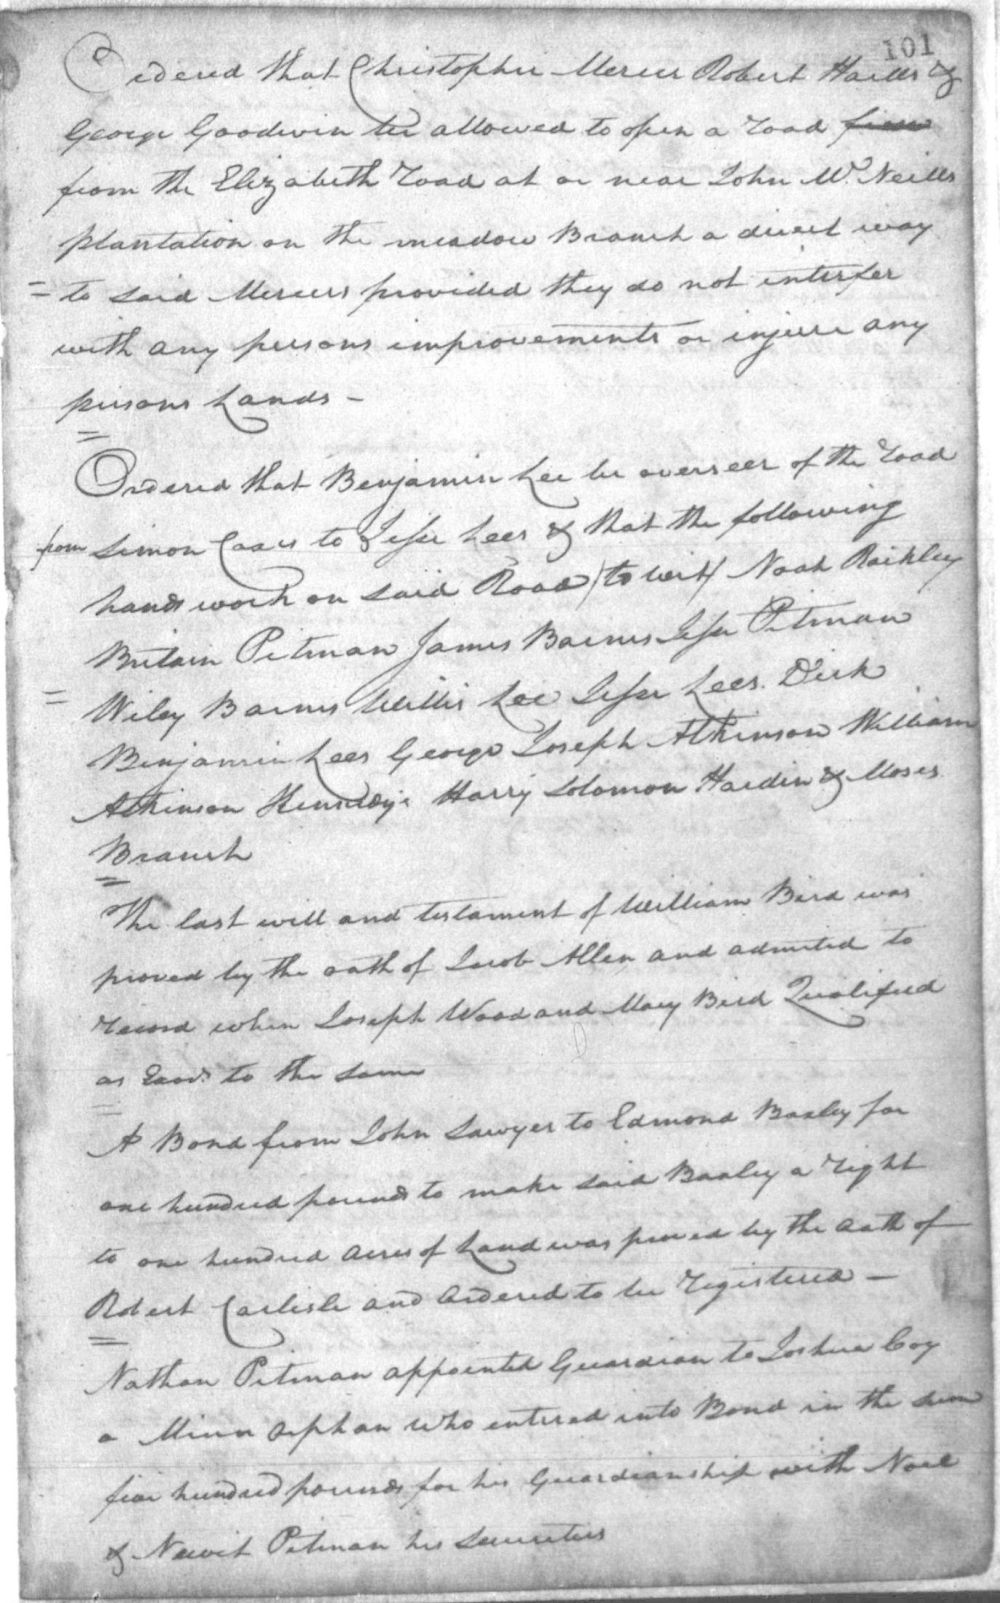 101
Ordered that Christopher Mercer Robert Hails &
George Goodwin be allowed to open a road from
from the Elizabeth road at or near John Mc Neills
plantation on the meadow Branch a direct way
to said Mercers provided they do not interfer
with any persons improvements or injure any
persons Lands -
Ordered that Benjamin Lee be overseer of the road
from Simon Coxes to Jesse Lees & that the following
hands work on said Road (to wit) Noah Raikley
Britain Pitman James Barnes Jesse Pitman
Wiley Barnes Willis Lee Jesse Lees Dick
Benjamin Lees George Joseph Atkinson William
Atkinson Harry Solomon Hardin & Moses
Branch
The last will and testament of William Bird was
proved by the oath of Jacob Allen and admited to
record when Joseph Wood and Mary Bird Qualified
as Exors to the same
A Bond from John Sawyer to Edmond Baxley for
one hundred pounds to make said Baxley a right
to one hundred acres of Land was proved by the oath of
Robert Carlisle and Ordered to be registered -
Nathan Pitman appointed Guardian to Joshua
a Minor orphan who entered into Bond in the sum
five hundred pounds for his Guardianship with Noel
& Newit Pitman his Securities